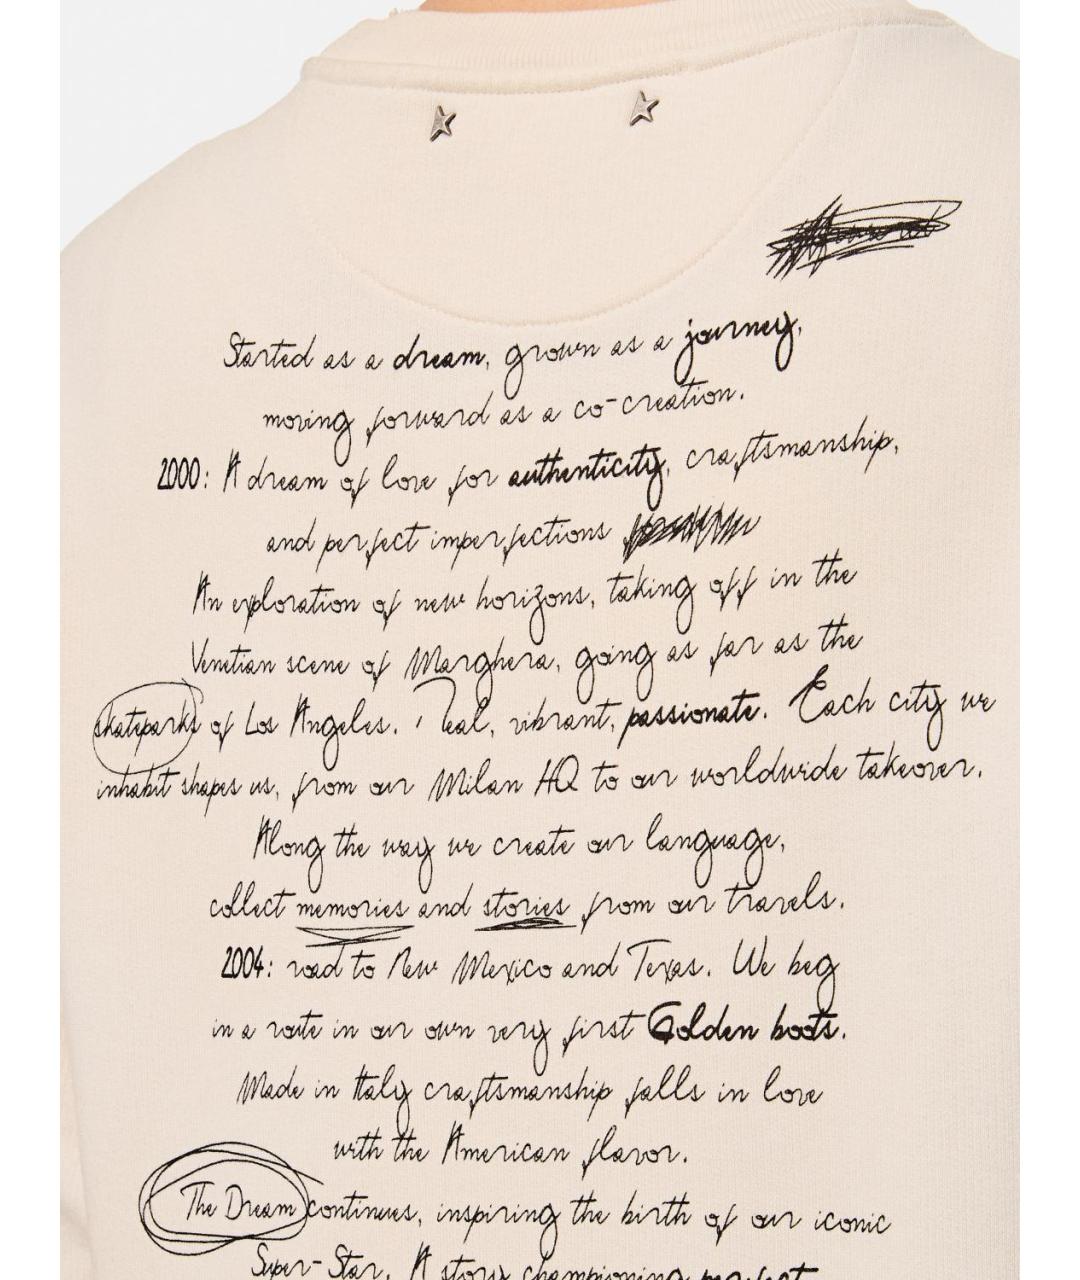 Started as a dream, grown as a journey,
moving forward as a co-creation.
2000: A dream of love for authenticity, craftsmanship,
and perfect imperfections
An exploration of new horizons, taking off in the
Venetian scene of Marghera, going as far as the
skateparks of Los Angeles. Real, vibrant, passionate. Each city we
inhabit shapes us, from our Milan HQ to our worldwide takeover.
Along the way we create our language,
collect memories and stories from our travels.
2004: road to New Mexico and Texas. We beg
in a route in our own very first Golden boots.
Made in Italy craftsmanship falls in love
with the American flavor.
The Dream continues, inspiring the birth of our iconic
Super-Star. A story championing perfect